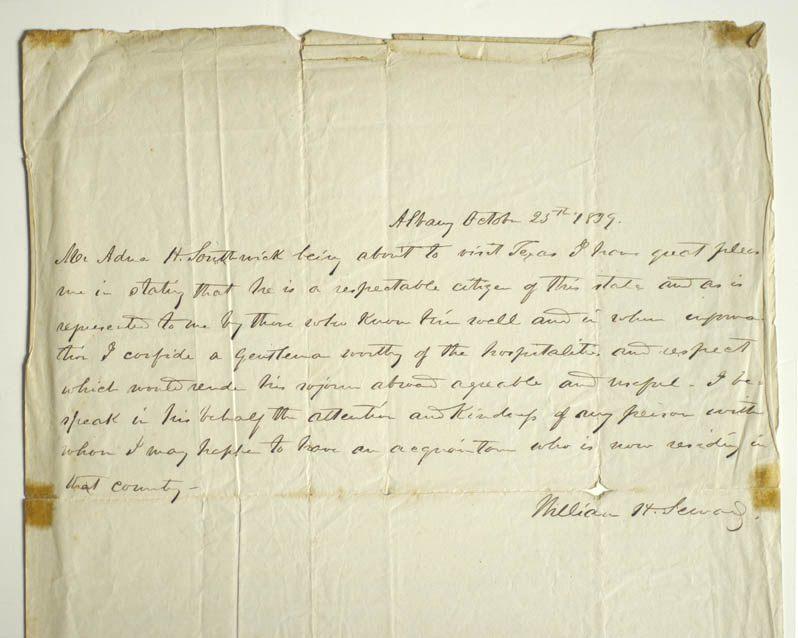 Albany October 25th 1839.
Mr Adna H. Southwick being about to visit Texas I have great pleas
ure in stating that he is a respectable citizen of this state and as is
represented to me by those who know him well and in whose informa
tion I confide a gentleman worthy of the hospitalities and respect
which would render his sojourn abroad agreeable and useful - I be
speak in his behalf the attention and kindness of any person with
whom I may happen to have an acquaintance who is now residing in
that country -
William H. Seward.